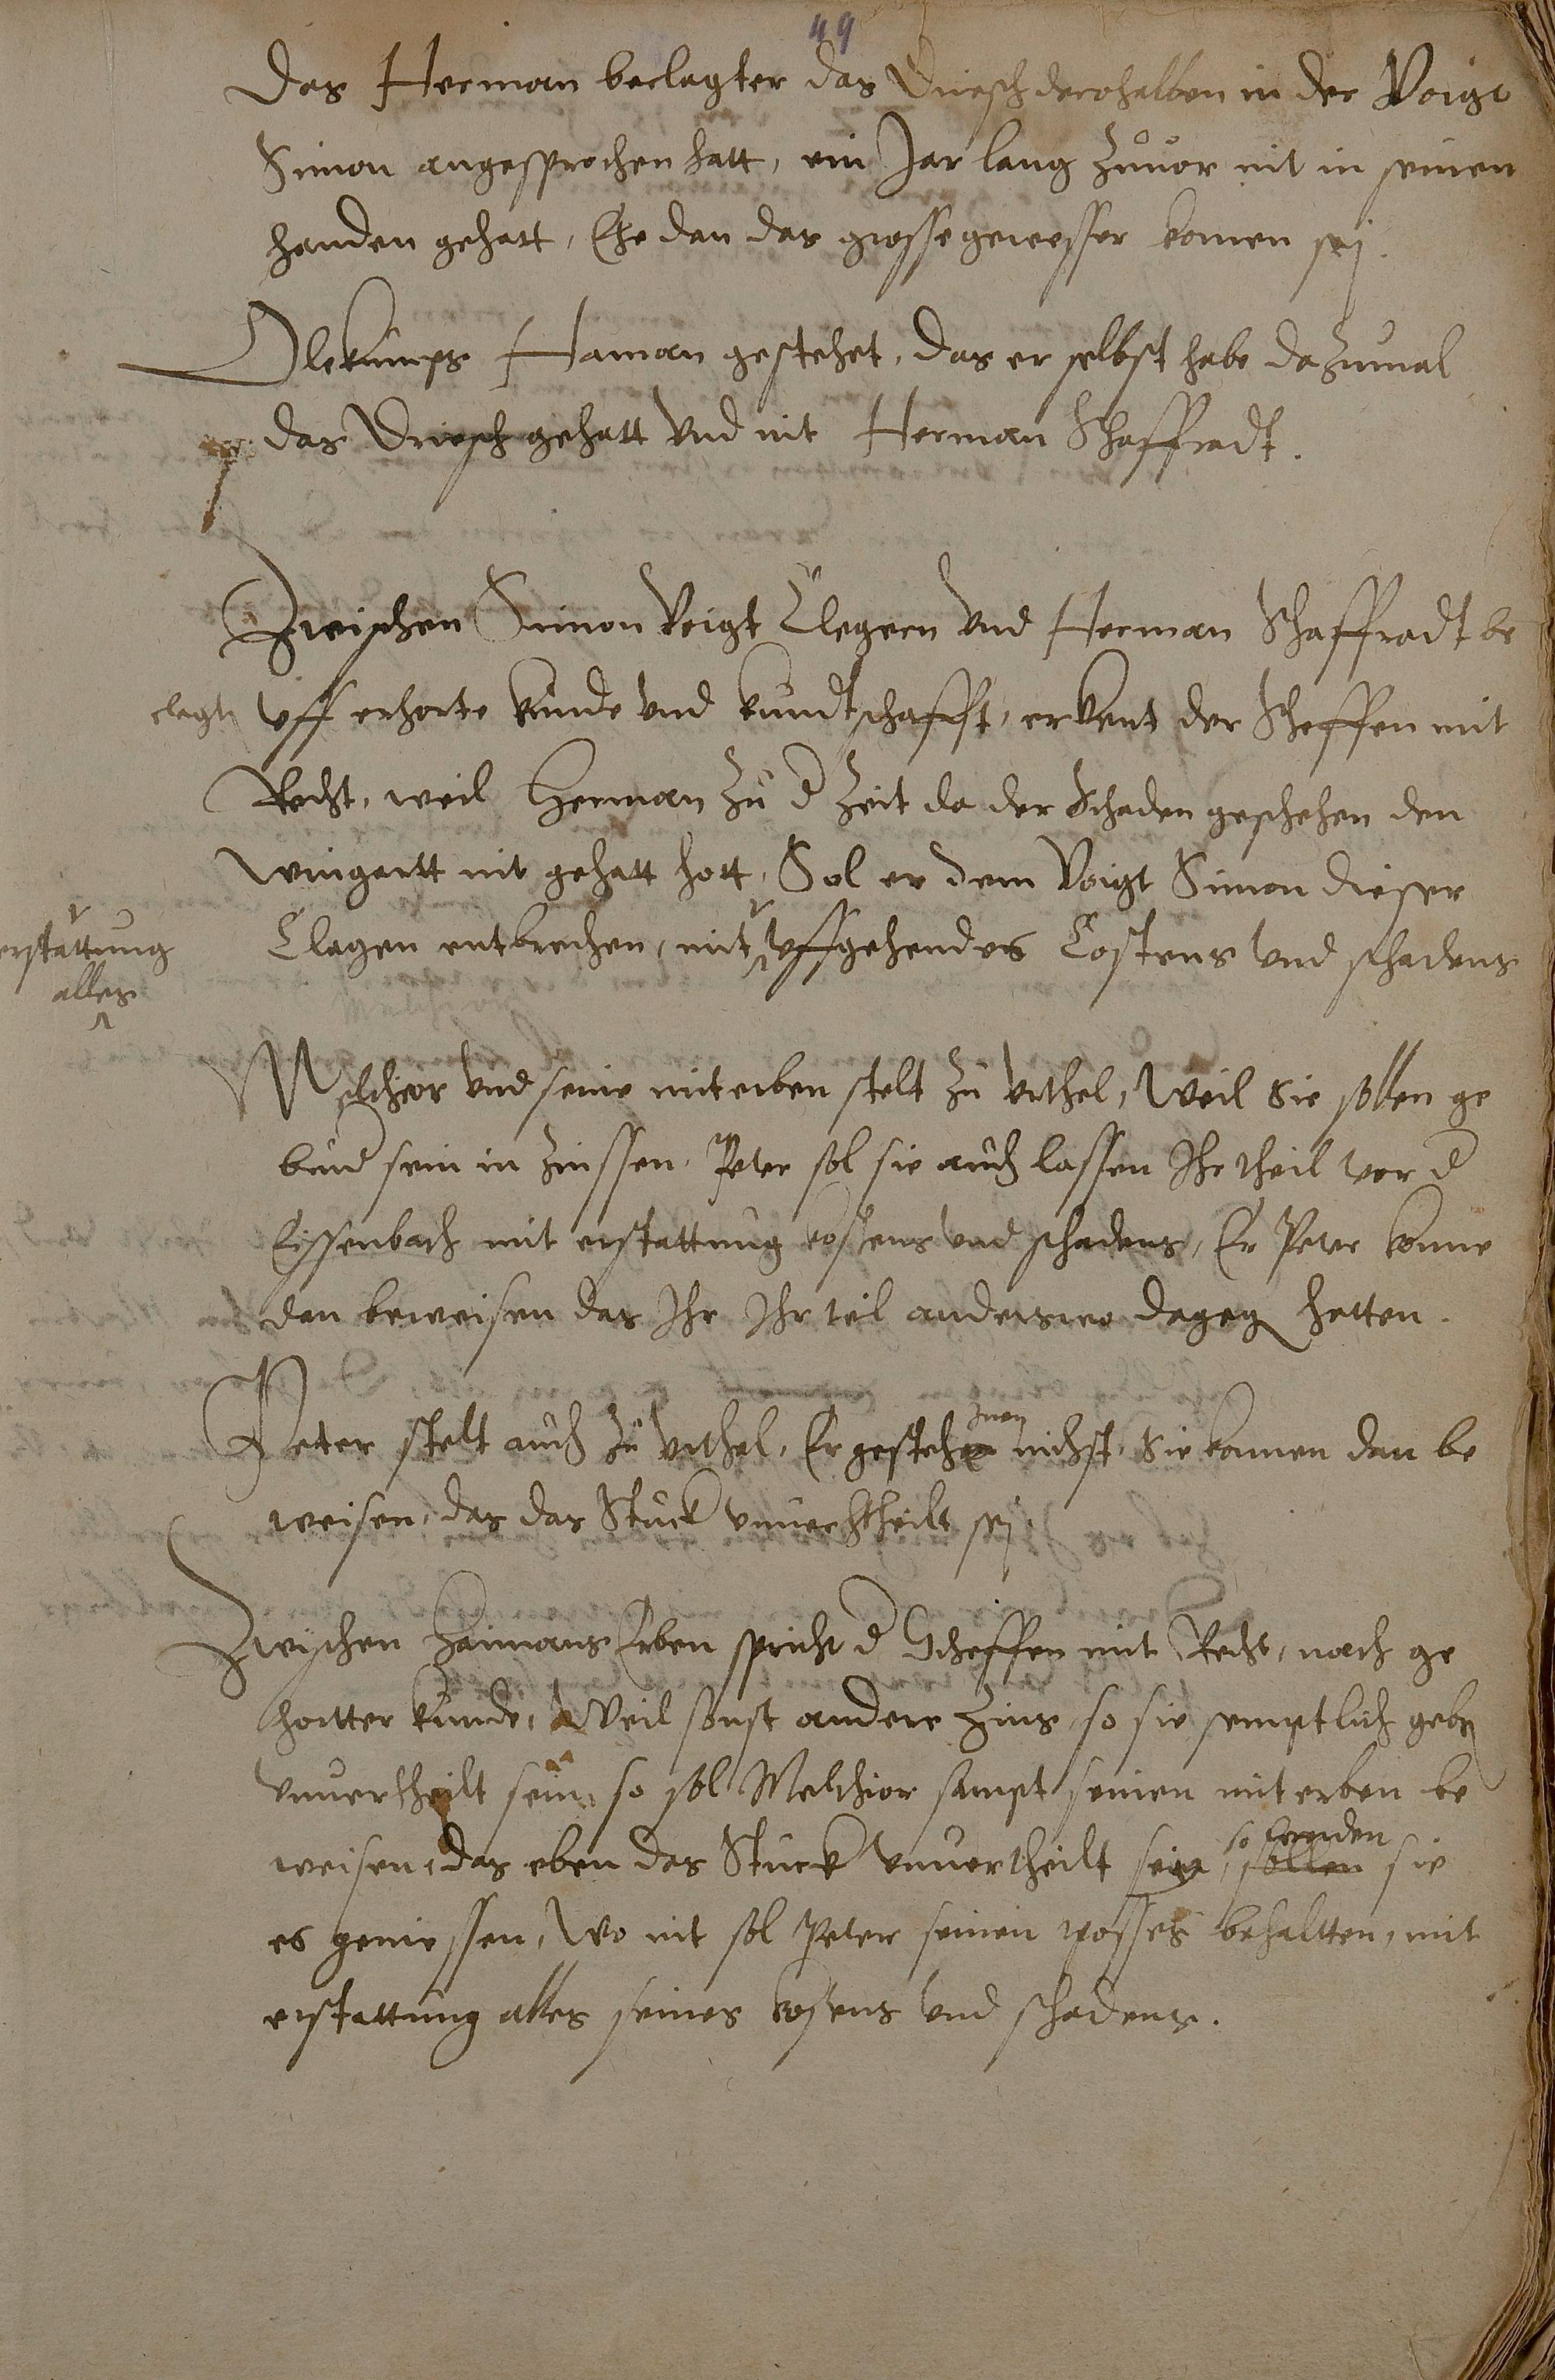 49
Das Herman beclagter das Driesch derohalben in der Voigt
Simon angesprochen hatt, ein Jar lang zuuor nit in seinen
handen gehatt, Ehe dan das grosse gewesser komen sej.
Olekumps Haman gestehet, das er selbst habe dazumal
das Driesch gehatt vnd nit Herman Schaffradt.
Zwischen Simon Voigt Clegern vnd Herman Schaffradt be
clagtn vff erhorte kunde vnd kundtschafft, erkent der Scheffen mit
Recht, weil Herman zu d Zeit da der Schaden geschehen den
wingartt nit gehatt hott, Sol er dem Voigt Simon dieser
Clagen entbrechen, mit vffgehendes Costens vnd schadens
erstattung
alles
Melchior vnd seine miterben stelt zu vrthel, Weil Sie sollen ge
bend sein in Zinssen, Peter sol sie auch lassen Ihr theil vor d
Eissenbach mit erstattung kostens vnd schadens, Er Peter konne
dan beweisen das Ihr Ihr teil anderswo dagegen hetten.
Peter stelt auch zu vrthel, Er gestehe Inen nichst, Sie konnen dan be
weisen, das das Stuck vnuerhtheilt sej.
Zwischen Hamans Erben spricht d Scheffen mit Recht, nach ge
hortter kunde, Weil sonst andere Zins, so sie semptlich geben
vnuertheilt sein, so sol Melchior sampt seinen miterben be
weisen, das eben das Stuck vnuertheilt seie, sollen so sie
es geniessen, Wo nit sol Peter seinen posses behaltten, mit
erstattung alles seines kostens vnd schadens.